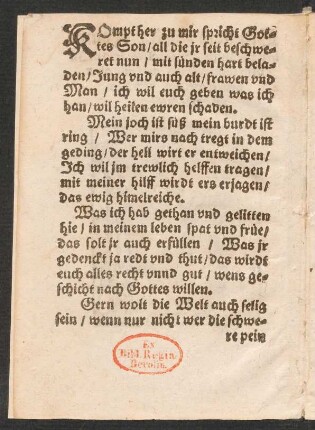 KOmpt her zu mir spricht Got-
tes Son/ all die jr seit beschwe-
ret nun / mit sünden hart bela-
den/ Jung vnd auch alt/ frawen vnd
Man / ich wil euch geben was ich
han/ wil heilen ewren schaden.
Mein joch ist süß mein burdt ist
ring / Wer mirs nach tregt in dem
geding/ der hell wirt er entweichen/
Ich wil jm trewlich helffen tragen/
mit meiner hilff wirdt ers erjagen/
das ewig himelreiche.
Was ich hab gethan vnd gelitten
hie / in meinem leben spat vnd früe/
das solt jr auch erfüllen / Was jr
gedenckt ja redt vnd thut/ das wirdt
euch alles recht vnnd gut / wens ge-
schicht nach Gottes willen.
Gern wolt die Welt auch selig
sein / wenn nur nicht wer die schwe-
re pein
Ex
Bibl. Regia
Berolin.